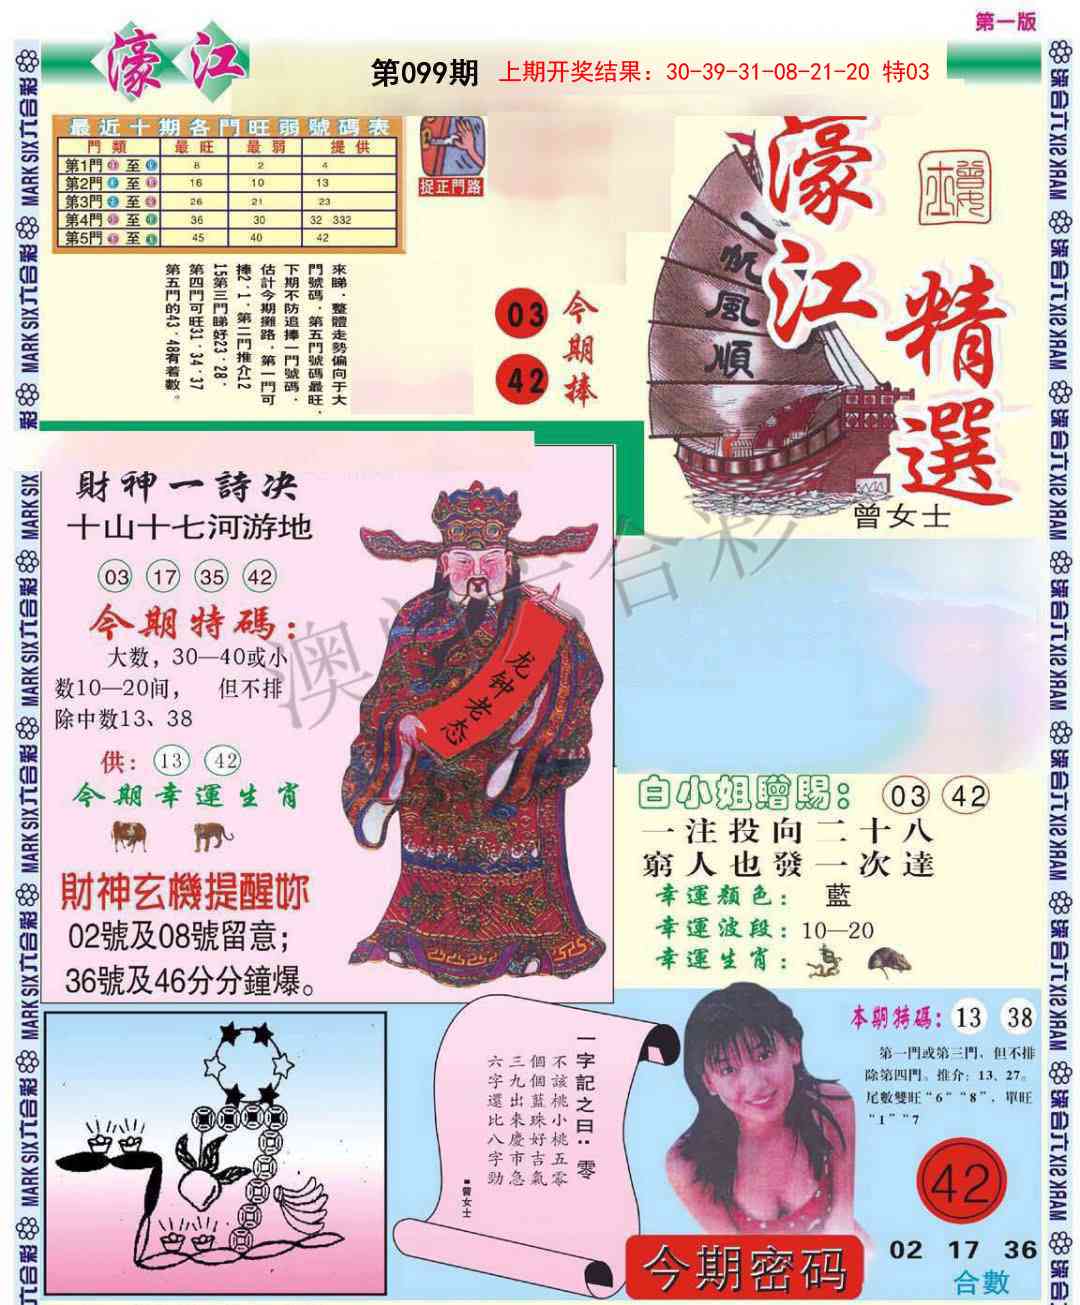 第一版
濠江
第099期
上期开奖结果：30-39-31-08-21-20 特03
最近十期各門旺弱號碼表
門類 最旺 最弱 提供
第1門 至 8 2 4
第2門 至 16 10 13
第3門 至 26 21 23
第4門 至 36 30 32 332
第5門 至 45 40 42
捉正門路
來睇，整體走勢偏向于大
門號碼，第五門號碼最旺，
下期不防追捧一門號碼，
估計今期攤路，第一門可
捧2·1，第二門推介12
15第三門睇好23·28，
第四門可旺31·34·37
第五門的43·48有着數。
今期捧
03
42
一帆風順
濠江
精選
曾女士
財神一詩决
十山十七河游地
03 17 35 42
今期特碼：
大数，30—40或小
数10—20间， 但不排
除中数13、38
供：13 42
今期幸運生肖
龙钟老态
財神玄機提醒妳
02號及08號留意；
36號及46分分鐘爆。
白小姐贈賜：03 42
一注投向二十八
窮人也發一次達
幸運顏色：藍
幸運波段：10—20
幸運生肖：
一字記之曰：零
不該桃小桃五零
個個藍珠好吉氣
三九出來慶市急
六字還比八字勁
■曾女士
本期特碼：13 38
第一門或第三門，但不排
除第四門。推介：13、27。
尾數雙旺“6”“8”，單旺
“1”“7
42
今期密码
02 17 36
合數
澳门六合彩
MARK SIX 六合彩